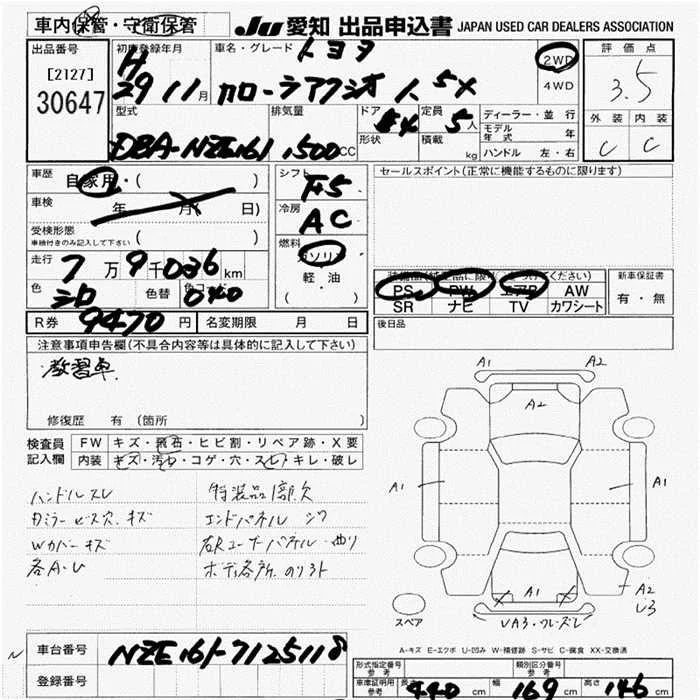 車内保管・守衛保管
JU 愛知 出品申込書 JAPAN USED CAR DEALERS ASSOCIATION
出品番号
[2127]
30647
初度登録年月
H
29 11月
車名・グレード
トヨタ
カローラアクシオ 1.5X
2WD
4WD
評価点
3.5
外装 内装
C C
型式
DBA-NZE161
排気量
1500CC
ドア
4
形状
定員
5人
積載
kg
ディーラー・並行
モデル年式 年
ハンドル 左・右
車歴
自家用・( )
車検
年 月( 日)
受検形態
車検付きのみ記入して下さい ( )
走行
7万9千036km
色
シロ
色替
色コード
040
シフト
F5
冷房
AC
燃料
ガソリン
軽・油
( ・ )
セールスポイント(正常に機能するものに限ります)
PS PW エアB AW
SR ナビ TV カワシート
新車保証書
有・無
R券 9470円 名変期限 月 日
後日品
注意事項申告欄(不具合内容等は具体的に記入して下さい)
教習車
修復歴 有 (箇所 )
検査員
記入欄
FW キズ・飛石・ヒビ割・リペア跡・X要
内装 キズ・汚れ・コゲ・穴・スレ・キレ・破レ
ハンドルスレ
特装品1部欠
カミラービス穴、キズ
エンドパネル
Wカバーキズ
右Rコーナーパネル曲り
各A・U
ボディ各所
A1 A2
A2
A1
A1
A1
A2
U3
スペア
A-キズ E-エクボ U-凹み W-補修跡 S-サビ C-腐食 XX-交換済
車台番号 NZE161-7125118
登録番号
形式指定番号
参考
類別区分番号
参考
車庫証明用
参考
長さ 440cm 幅 169cm 高さ 146cm